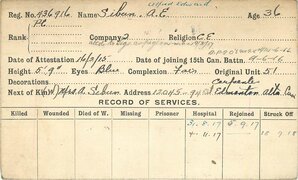 Alfred Edward
Reg. No. 436916 Name Sibun. A.E. Age 36
Pte
Rank Company 2 Religion C.E
Date of Attestation 16/3/15 Date of joining 15th Can. Battn. 9-6-16
Height 5' 9" Eyes Blue Complexion Fair Original Unit 51
Decorations Carpenter
Next of Kin Mrs A. Sibun. Address 12045 - 94 St Edmonton Alta Can
RECORD OF SERVICES.
Killed Wounded Died of W. Missing Prisoner Hospital Rejoined Struck Off
31.8.17 5.9.17
4.11.17 7.18